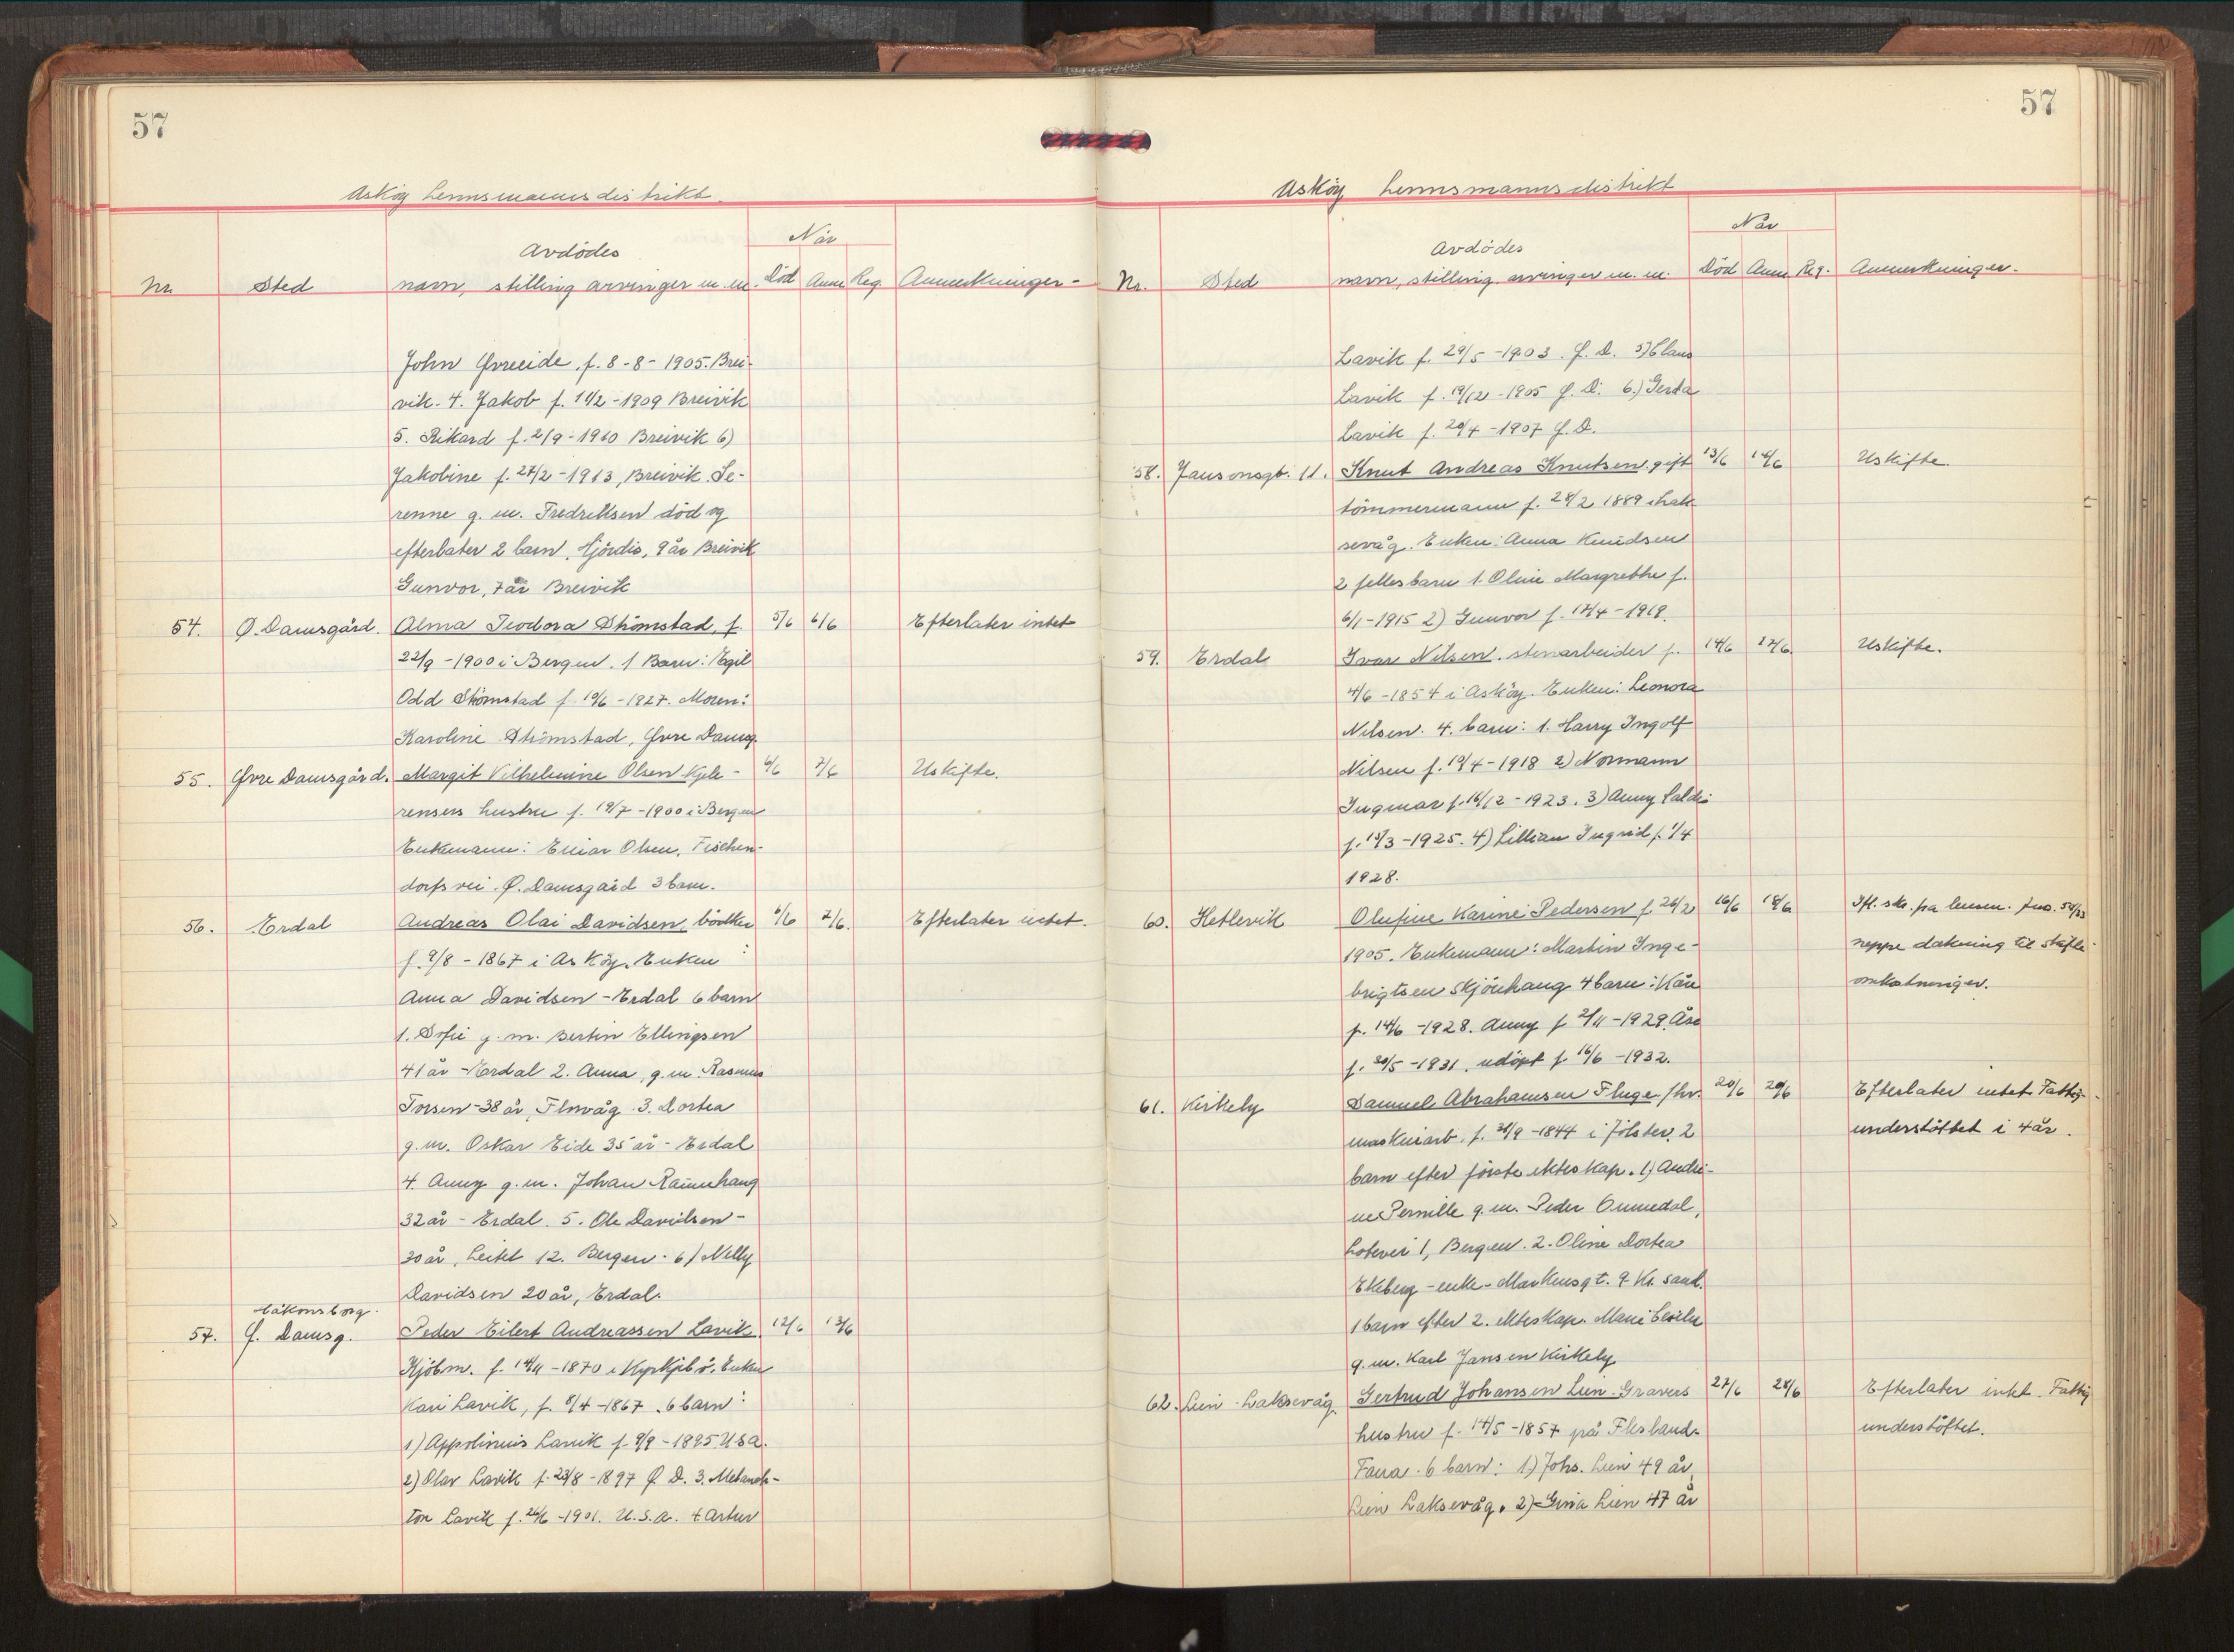 57
Asköy Lensmannsdistrikt.
Når
Avdödes
Nr. Sted navn, stilling arvinger m. m. Död Anm Reg. Anmerkninger
John Yvreeide, f. 8-8-1905. Brei-
vik. 4. Jakob f. 11/2-1909 Breivik
5. Rikard f. 2/9-1910 Breivik 6)
Jakobine f. 27/2-1913, Breivik. Se-
renne g. m. Fredriksen död og
efterlater 2 barn, Hjördis, 9 år Breivik
Gunvor, 7 år Breivik
54. Ø. Damsgård. Alma Teodora Strömstad, f. 5/6 6/6 Efterlater intet
22/9-1900 i Bergen. 1 Barn: Egil
Odd Strömstad f. 19/6-1927. Moren:
Karoline Strömstad, Yvre Damsg.
55. Yvre Damsgård. Margit Vilhelmine Olsen Kjele- 6/6 7/6 Uskifte.
rensers hustru f. 19/7-1900 i Bergen
Enkemann: Einar Olsen, Fischen-
dorfs vei. Ø. Damsgård 3 barn.
56. Erdal Andreas Olai Davidsen, bödtker 6/6 7/6. Efterlater intet.
f. 9/8-1867 i Asköy. Enken:
Anna Davidsen - Erdal 6 barn
1. Sofie g. m. Bertin Ellingsen
41 år - Erdal 2. Anna, g. m. Rasmus
Torsen - 38 år, Florvåg. 3. Dortea
g. m. Oskar Eide 35 år - Erdal
4. Anny g. m. Johan Ramnhaug
32 år - Erdal. 5. Ole Davidsen -
30 år, Leitet 12. Bergen. 6) Nelly
Davidsen 20 år, Erdal.
Håkonsborg.
57. Y. Damsg. Peder Eilert Andreassen Lavik. 12/6 13/6
Kjöbm. f. 14/11-1870 i Kyrkjebö. Enken
Kari Lavik, f. 8/4-1867. 6 barn:
1) Appolinius Lavik f. 9/9-1895 U S a.
2) Olav Lavik f. 23/8-1897 Ø D. 3. Melanch-
ton Lavik f. 26/6-1901. U. S. a. 4 Artur
57
Asköy Lennsmannsdistrikt
Når
Avdödes
Nr. Sted navn, stilling, arvinger m. m. Död Anm Reg. Anmerkninger.
Lavik f. 29/5-1903. Y. D. 5) Claus
Lavik f. 19/12-1905 Y. D. 6.) Gerda
Lavik f. 20/4-1907 Y. D.
58. Jansonsgt. 11. Knut Andreas Knutsen, gift 13/6 14/6 Uskifte.
tömmermann f. 28/2 1889 i Lak-
sevåg. Enken: Anna Knudsen
2 fellesbarn 1. Oline Margrethe f.
6/1-1915 2) Gunvor f. 17/4-1919.
59. Erdal Ivar Nilsen, stenarbeider f. 14/6 17/6. Uskifte.
4/6-1854 i Asköy. Enken: Leonora
Nilsen. 4. barn: 1. Harry Ingolf
Nilsen f. 19/4-1918 2) Normann
Ingmar f. 16/12-1923. 3) Anny
f. 13/3-1925. 4) Lillian Ingrid f. 1/4
1928.
60. Hetlevik Olufine Karine Pedersen f. 26/2 16/6 18/6 Ifl. skr. fra lensm. 54/33
1905. Enkemann: Martin Inge- neppe dekning til skifte-
brigtsen Skjönhaug 4 barn: Kåre omkostninger.
f. 14/6-1928. Anny f. 2/11-1929. Åse
f. 30/5-1931, udöpt f. 16/6-1932.
61. Kirkely Samuel Abrahamsen Fluge, fhv. 20/6 20/6 Efterlater intet Fattig-
maskinarb. f. 30/9-1844 i Jölster. 2 understöttet i 4 år.
barn efter förste ekteskap. 1) Andri-
ne Pernille g. m. Peder Ommedal,
Lotevei 1, Bergen. 2. Oline Dortea
Ekeberg - enke - Markensgt. 9 Kr. sand.
1 barn efter 2. ekteskap. Marie
g. m. Karl Jansen Kirkely
62. Lien - Laksevåg. Gertrud Johansen Lien - Gravers 27/6 28/6 Efterlater intet Fattig
hustru f. 14/5-1857 på Flesland- understöttet.
Fana. 6 barn: 1) Johs. Lien 49 år,
Lien Laksevåg. 2) Gina Lien 47 år